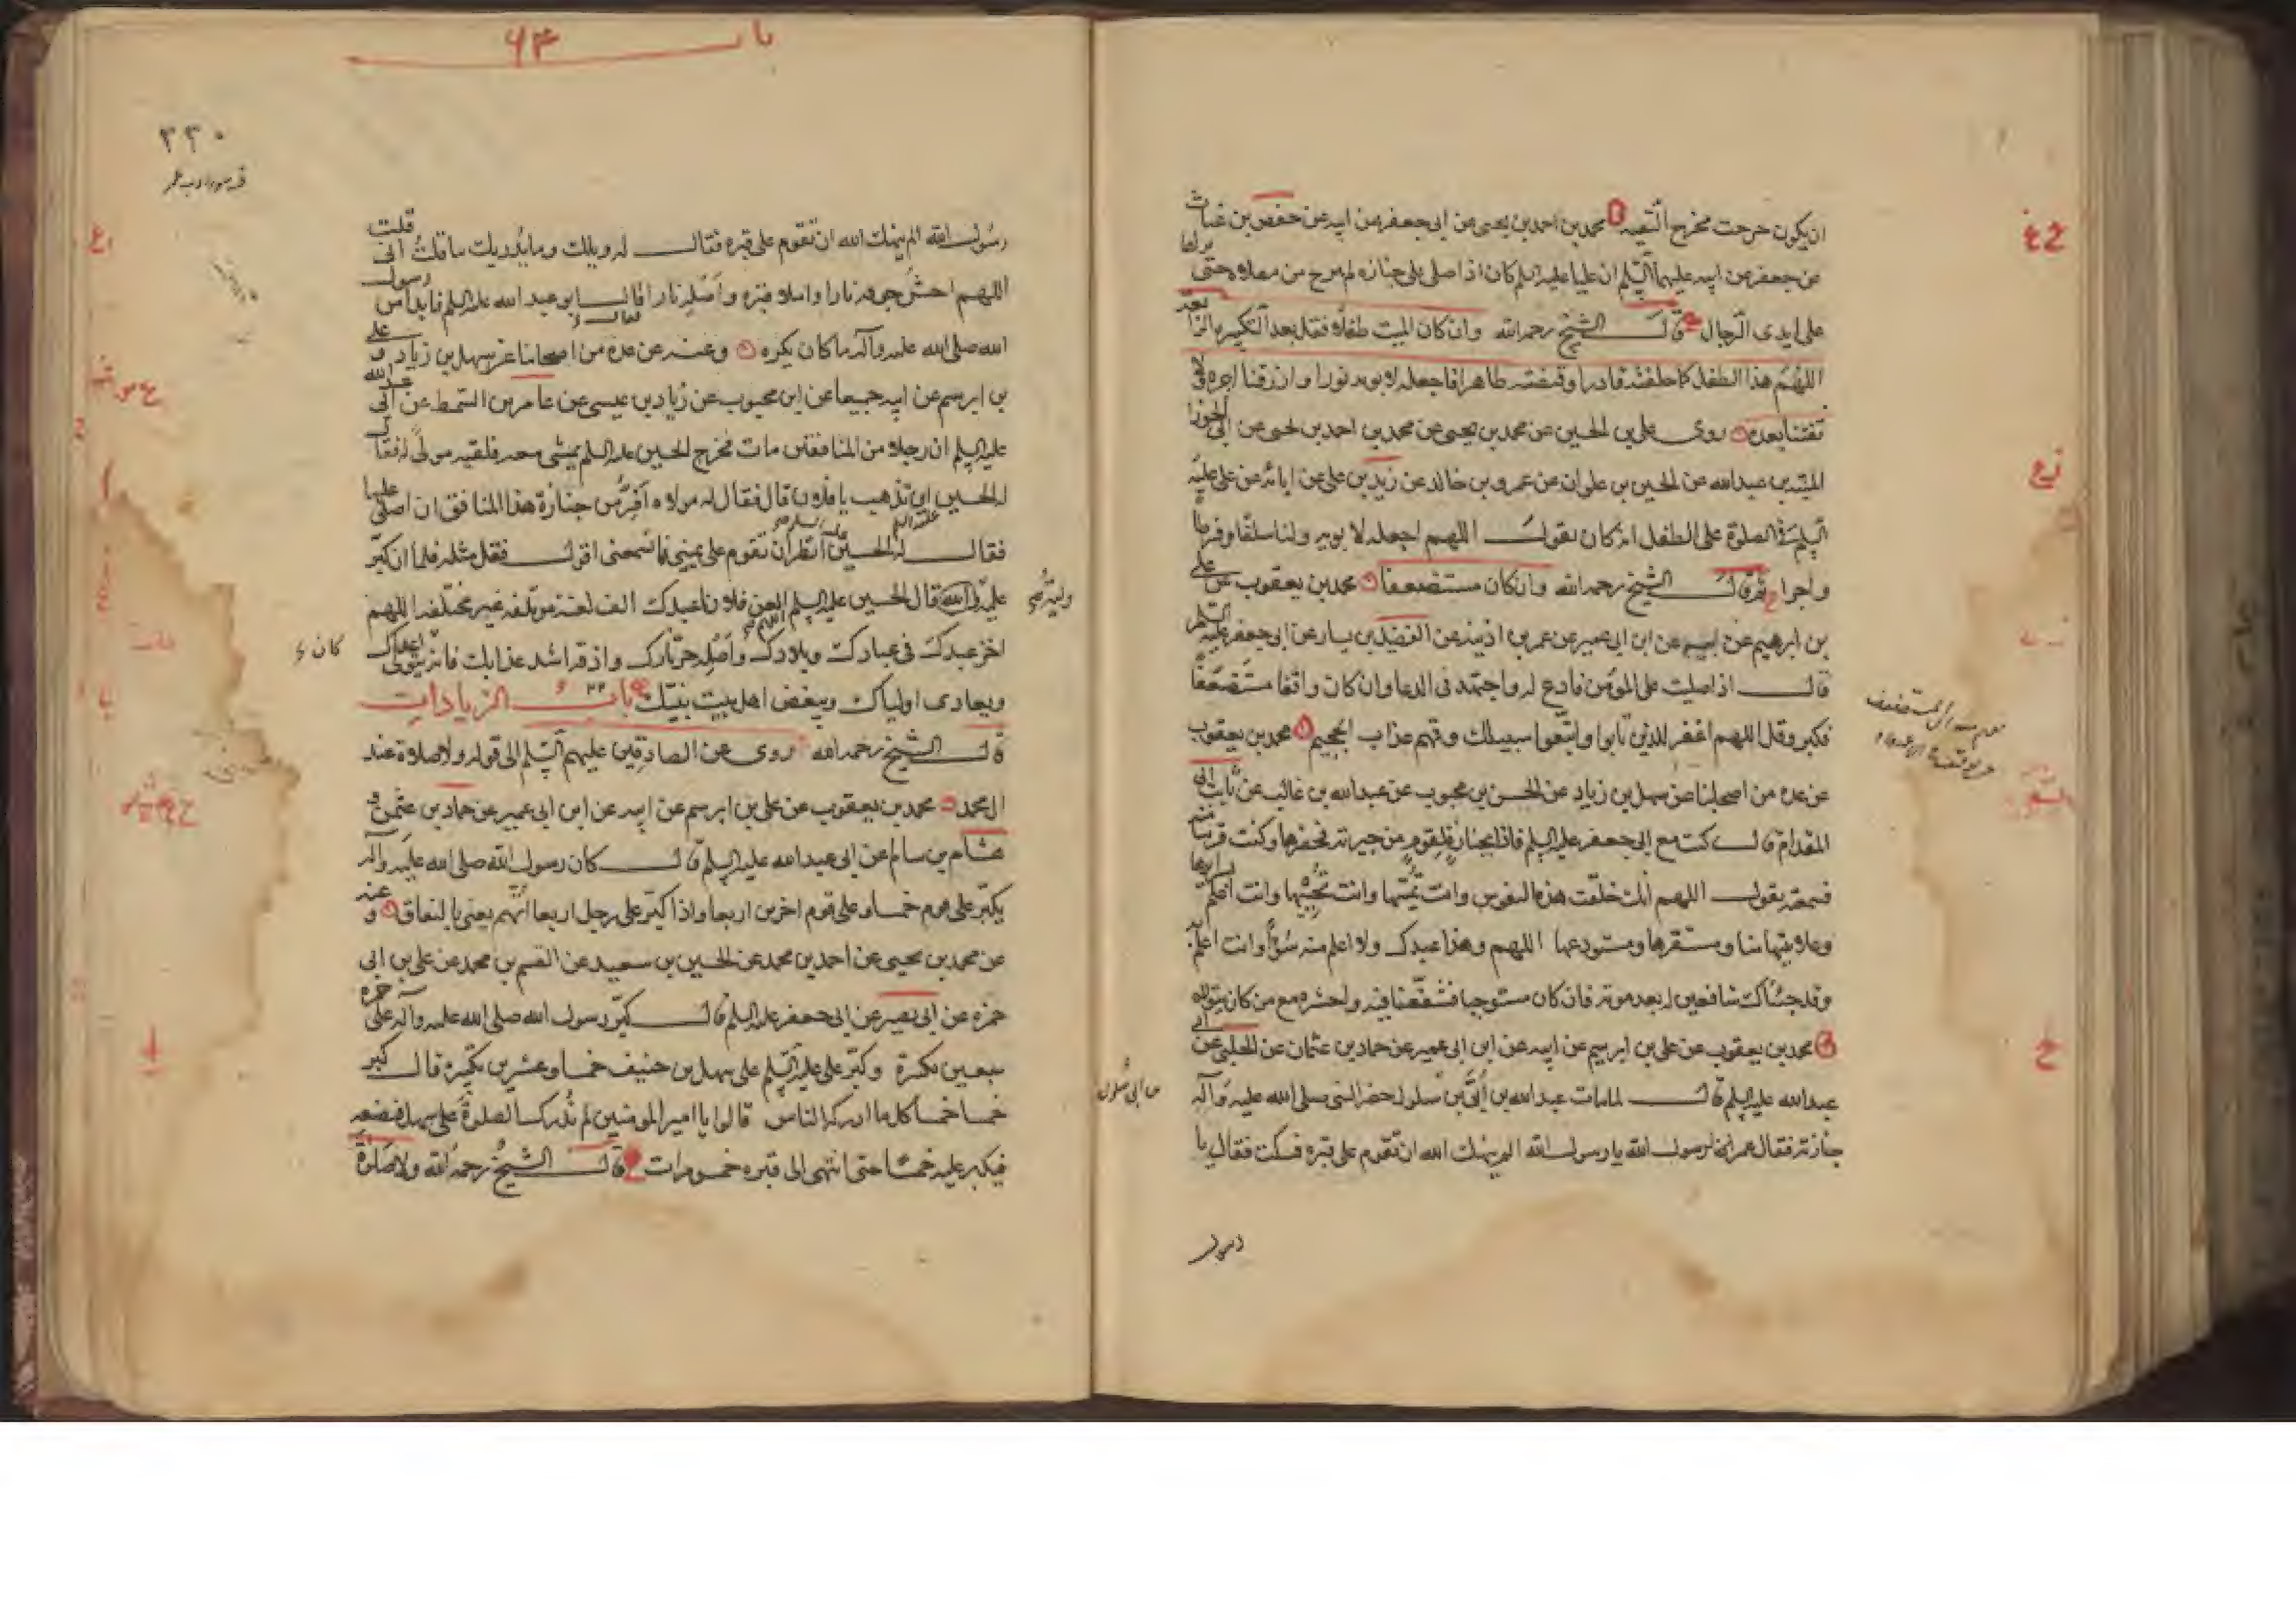 ان يكون خرجت مخرج التقيه محمد بن احمد بن يحيى عن ابى جعفر عن ابيه عن حفص بن غياث
عن جعفر عن ابيه عليهما السلم ان عليا عليه السلم كان اذا صلى على جنازه لم يبرح من مصلاه حتى يراها
على ايدى الرجال قال الشيخ رحمه الله وان كان الميت طفلا فقل بعد التكبيره الرابعه
اللهم هذا الطفل كما خلقته قادرا وقبضته طاهرا فاجعله لابويه نورا وارزقنا اجره ولا
تفتنا بعده روى على بن الحسين عن محمد بن يحيى عن محمد بن احمد بن يحيى عن ابى الجوزا
المنبه بن عبدالله عن الحسين بن علوان عن عمرو بن خالد عن زيد بن على عن ابائه عن على عليه
السلم فى الصلوة على الطفل انه كان يقول اللهم اجعله لابويه ولنا سلفا وفرطا
واجرا ثم قال الشيخ رحمه الله وان كان مستضعفا محمد بن يعقوب عن على
بن ابرهيم عن ابيه عن ابن ابى عمير عن عمر بن اذينه عن الفضيل بن يسار عن ابى جعفر عليه السلم
قال اذا صليت على المؤمن فادع له واجتهد فى الدعا وان كان واقفا مستضعفا
فكبر وقل اللهم اغفر للذين تابوا واتبعوا سبيلك وقهم عذاب الجحيم محمد بن يعقوب
عن عده من اصحابنا عن سهل بن زياد عن الحسن بن محبوب عن عبدالله بن غالب عن ثابت ابى
المقدام قال كنت مع ابى جعفر عليه السلم فاذا بجنازة لقوم من جيرته فحضرها وكنت قريبا منه
فسمعته يقول اللهم انك خلقت هذه النفوس وانت تميتها وانت تحييها وانت اعلم بسرايرها
وعلانيتها منا ومستقرها ومستودعها اللهم وهذا عبدك ولا اعلم منه سوءا وانت اعلم به
وقد جئناك شافعين له بعد موته فان كان مستوجبا فشفعنا فيه واحشره مع من كان يتولاه
محمد بن يعقوب عن على بن ابرهيم عن ابيه عن ابن ابى عمير عن حماد بن عثمان عن الحلبى عن ابى
عبدالله عليه السلم قال لما مات عبدالله بن أبى بن سلول حضر النبى صلى الله عليه وآله
جنازته فقال عمر لرسول الله يا رسول الله الم ينهك الله ان تقوم على قبره فسكت فقال يا
بن ابى سلول
باب ۶۳
٢٣٠
رسول الله الم ينهك الله ان تقوم على قبره فقال له ويلك وما يدريك ما قلت انى قلت
اللهم احش جوفه نارا واملا قبره نارا واصله نارا قال ابو عبد الله عليه السلم فابدا من رسول
الله صلى الله عليه وآله ما كان يكره وعنه عن عدة من اصحابنا عن سهل بن زياد وعلى
بن ابرهيم عن ابيه جميعا عن ابن محبوب عن زياد بن عيسى عن عامر بن السمط عن ابى عبدالله
عليه السلم ان رجلا من المنافقين مات فخرج الحسين عليه السلم يمشى معه فلقيه مولى له فقال
له الحسين اين تذهب يا فلان قال فقال له مولاه افر من جنازة هذا المنافق ان اصلى عليها
فقال له الحسين عليه السلم انظر ان تقوم على يمينى فما تسمعنى اقول فقل مثله فلما ان كبر
عليه وليه قال الحسين عليه السلم اللهم العن فلانا عبدك الف لعنة مؤتلفه غير مختلفه اللهم
اخز عبدك فى عبادك وبلادك واصله حر نارك واذقه اشد عذابك فانه يتولى اعداك
كان
ويعادى اولياك ويبغض اهل بيت نبيك باب الزيادات
قال الشيخ رحمه الله روى عن الصادقين عليهم السلم الى قوله ولا صلاة عند
ال محمد محمد بن يعقوب عن على بن ابرهيم عن ابيه عن ابن ابى عمير عن حماد بن عثمن و
هشام بن سالم عن ابى عبدالله عليه السلم قال كان رسول الله صلى الله عليه وآله
يكبر على قوم خمسا وعلى قوم اخرين اربعا واذا كبر على رجل اربعا اتهم يعنى بالنفاق وعنه
عن محمد بن يحيى عن احمد بن محمد عن الحسين بن سعيد عن القسم بن محمد عن على بن ابى
حمزه عن ابى بصير عن ابى جعفر عليه السلم قال كبر رسول الله صلى الله عليه وآله على حمزه
سبعين تكبيرة وكبر على عليه السلم على سهل بن حنيف خمسا وعشرين تكبيرة قال كبر
خمسا خمسا كلما ادركه الناس قالوا يا امير المومنين لم ندرك الصلوة على سهل فيضعه
فيكبر عليه خمسا حتى انتهى الى قبره خمس مرات قال الشيخ رحمه الله ولا صلاة